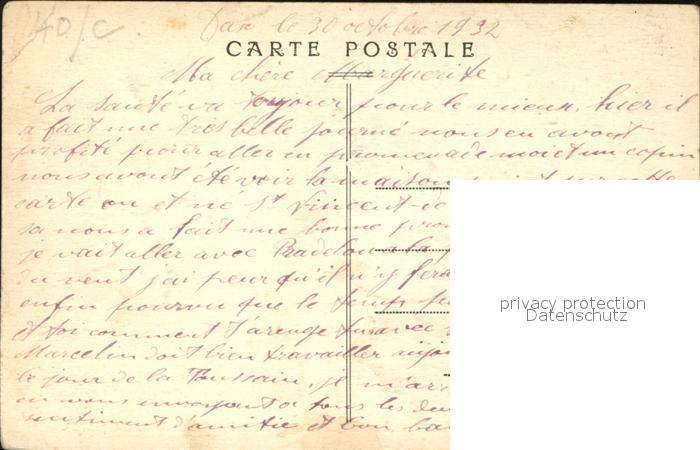 40/C
Dax le 30 octobre 1932
CARTE POSTALE
Ma chère Marguerite
La santé va toujour pour le mieux, hier il
a fait une très belle journé nous en avont
profité pour aller en promenade moi et un copin
nous avont été voir la maison
carte ou et ne St Vincent de
sa nous a fait une bonne pro
je vait aller avec la
du vent j'ai peur qu'il n'y fera
enfin pourvu que le temp
et toi comment t'arenge tu avec
Marcelin doit bien travailler aujo
le jour de la Toussain, je m'arr
en vous envoyant a tous les deu
sentiment d'amitie et bon ba
privacy protection
Datenschutz